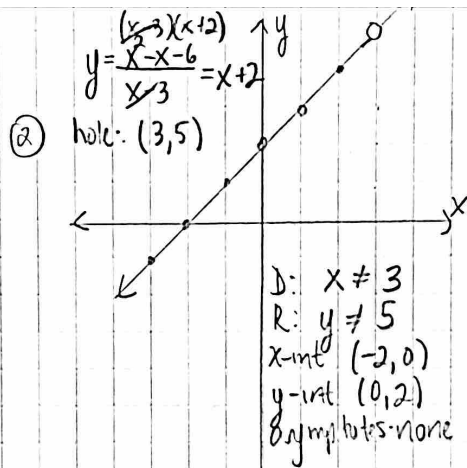 (x-3)(x+2)
y = x²-x-6 / x-3 = x+2
② hole: (3,5)
y
x
D: x ≠ 3
R: y ≠ 5
x-int (-2,0)
y-int (0,2)
asymptotes-none